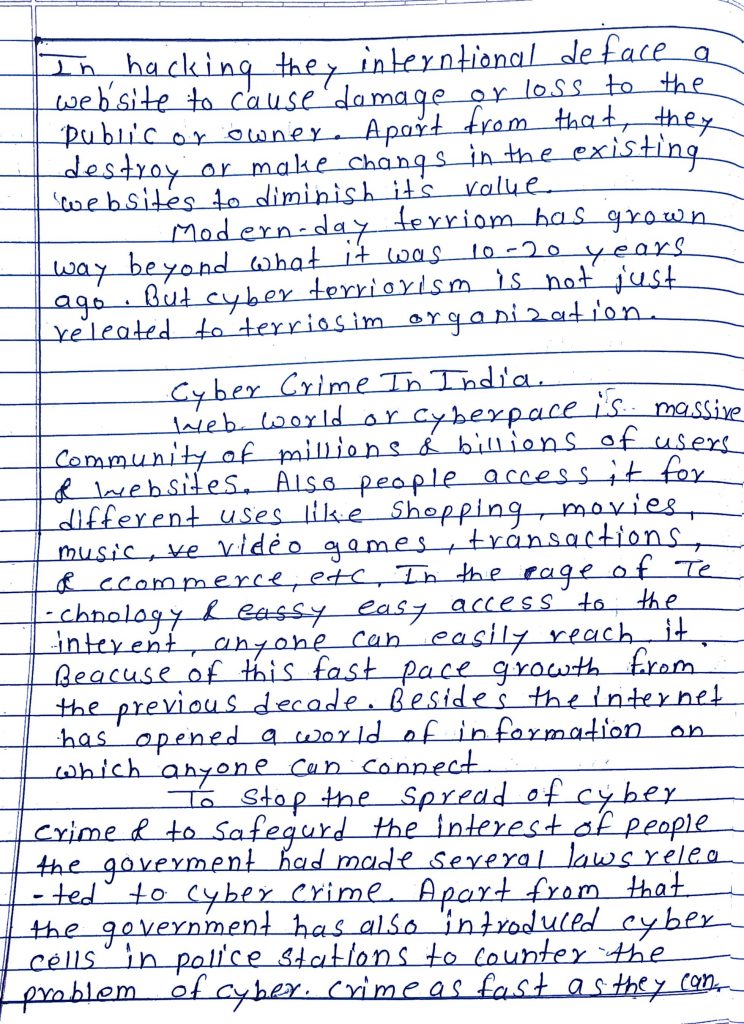 In hacking they interntional deface a
website to cause damage or loss to the
public or owner. Apart from that, they
destroy or make changs in the existing
websites to diminish its value.
Modern-day terriom has grown
way beyond what it was 10-20 years
ago. But cyber terriorism is not just
releated to terriosim organization.
Cyber Crime In India.
Web world or cyberpace is massive
community of millions & billions of users
& websites. Also people access it for
different uses like shopping, movies,
music, ve video games, transactions,
& ecommerce, etc. In the eage of Te
-chnology & eassy easy access to the
intervent, anyone can easily reach it.
Beacuse of this fast pace growth from
the previous decade. Besides the internet
has opened a world of information on
which anyone can connect.
To stop the spread of cyber
crime & to safegurd the interest of people
the goverment had made several laws relea
-ted to cyber crime. Apart from that
the government has also introduced cyber
cells in police stations to counter the
problem of cyber. crime as fast as they can.